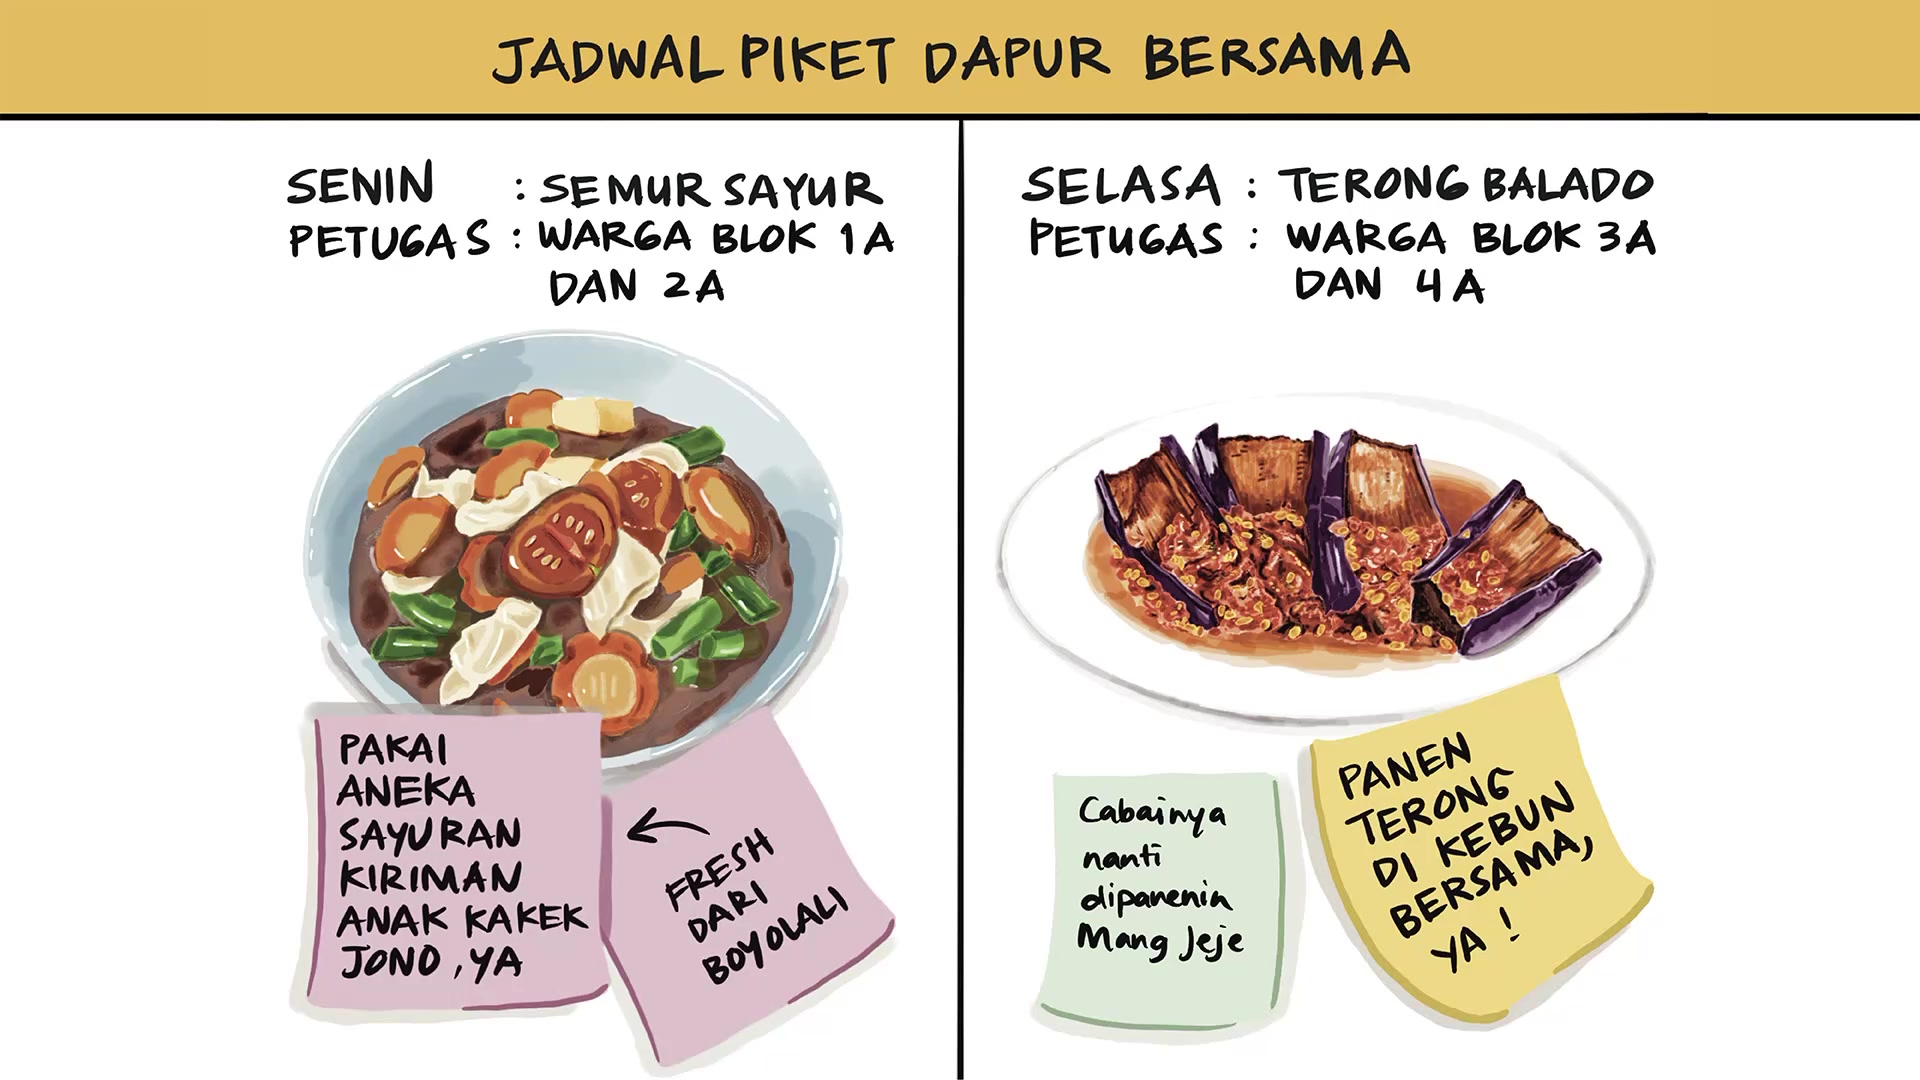 JADWAL PIKET DAPUR BERSAMA
SENIN : SEMUR SAYUR
PETUGAS : WARGA BLOK 1A
DAN 2A
PAKAI
ANEKA
SAYURAN
KIRIMAN
ANAK KAKEK
JONO, YA
FRESH
DARI
BOYOLALI
SELASA : TERONG BALADO
PETUGAS : WARGA BLOK 3A
DAN 4A
Cabainya
nanti
dipanenin
Mang Jeje
PANEN
TERONG
DI KEBUN
BERSAMA,
YA!